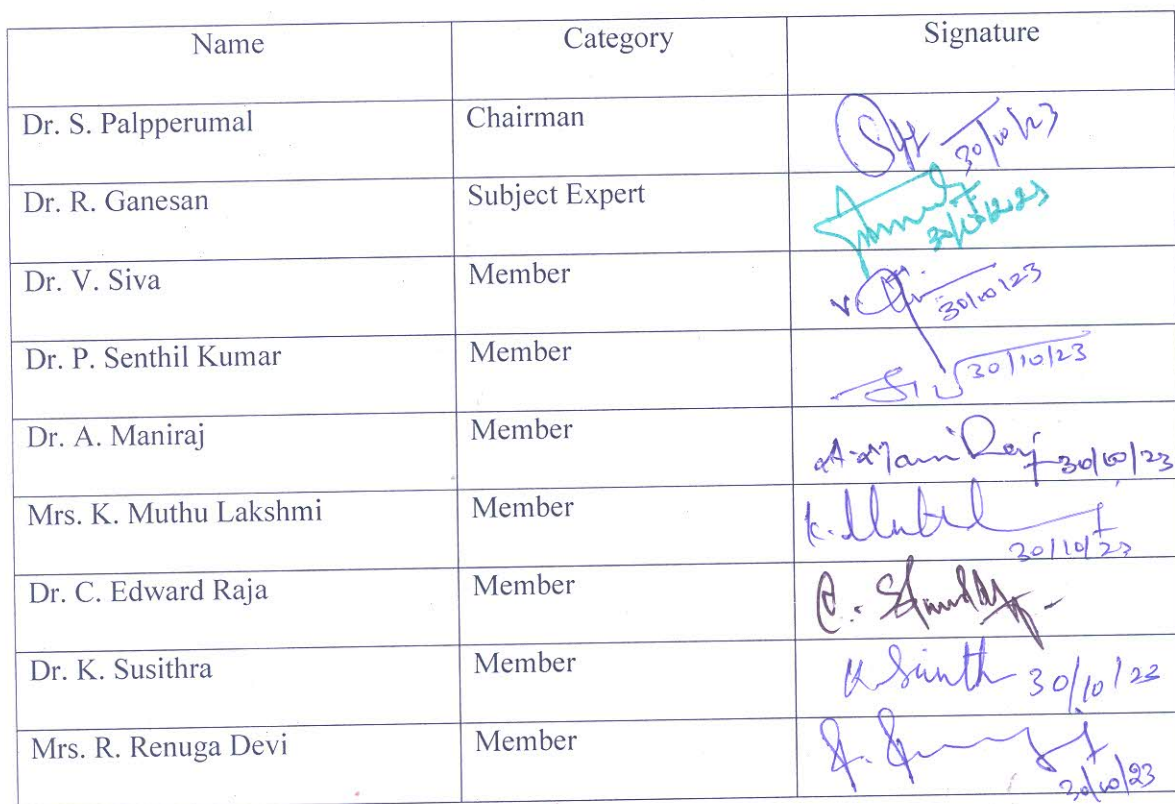 Name Category Signature
Dr. S. Palpperumal Chairman 30/10/23
Dr. R. Ganesan Subject Expert
Dr. V. Siva Member 30/10/23
Dr. P. Senthil Kumar Member 30/10/23
Dr. A. Maniraj Member 30/10/23
Mrs. K. Muthu Lakshmi Member 30/10/23
Dr. C. Edward Raja Member
Dr. K. Susithra Member 30/10/23
Mrs. R. Renuga Devi Member 30/10/23